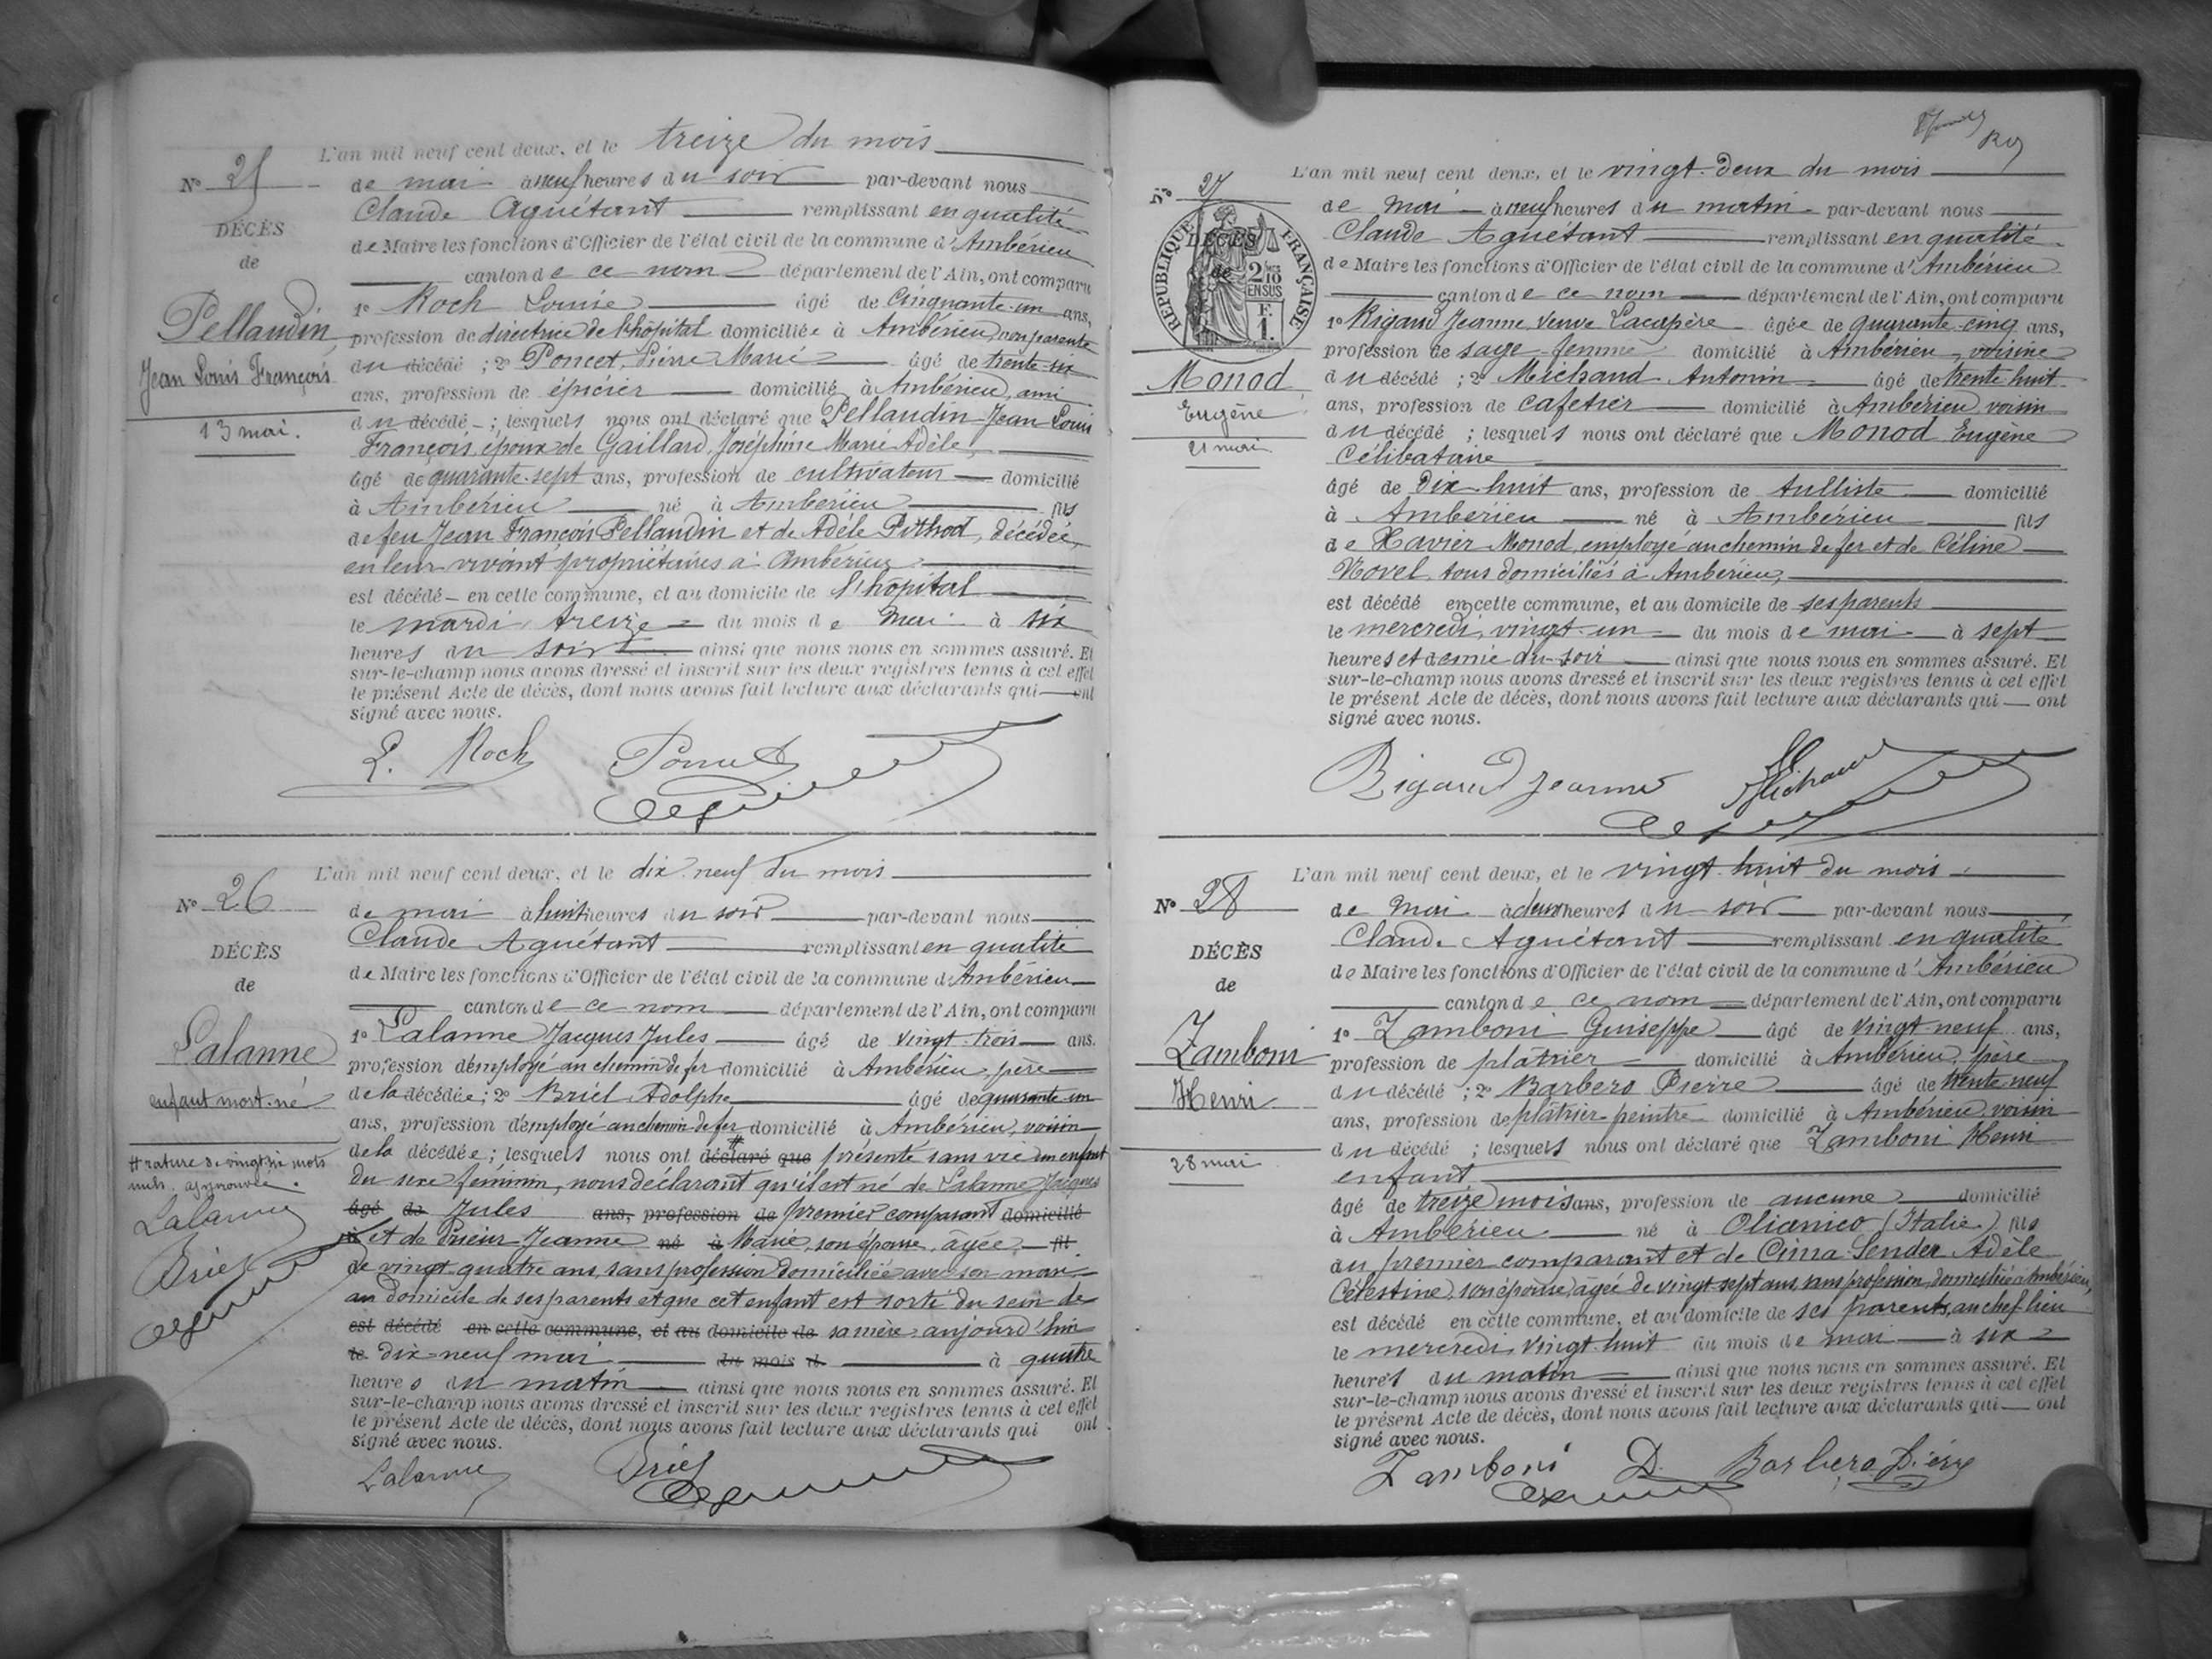 L'an mil neuf cent deux, et le treize du mois
N° 25
de mai à neuf heures du soir par-devant nous
Claude Aguétant remplissant en qualité
DÉCÈS
de Maire les fonctions d'Officier de l'état civil de la commune d'Ambérieu
de
canton de ce nom département de l'Ain, ont comparu
1° Roch Louise âgé de cinquante-un ans,
Pellaudin
profession de directrice de l'hôpital domiciliée à Ambérieu, non parente
du décédé ; 2° Poncet, Pierre Marie âgé de trente-six
Jean Louis François
ans, profession de épicier domicilié à Ambérieu, ami
du décédé ; lesquels nous ont déclaré que Pellaudin Jean Louis
13 mai.
François, époux de Gaillard, Joséphine Marie Adèle,
âgé de quarante-sept ans, profession de cultivateur domicilié
à Ambérieu né à Ambérieu fils
de feu Jean François Pellaudin et de Adèle Pithod, décédée,
en leur vivant propriétaires à Ambérieu
est décédé en cette commune, et au domicile de l'hôpital
le mardi, treize du mois de mai à six
heures du soir ainsi que nous nous en sommes assuré. Et
sur-le-champ nous avons dressé et inscrit sur les deux registres tenus à cet effet
le présent Acte de décès, dont nous avons fait lecture aux déclarants qui ont
signé avec nous.
L. Roch Poncet
L'an mil neuf cent deux, et le dix neuf du mois
N° 26
de mai à huit heures du soir par-devant nous
Claude Aguétant remplissant en qualité
DÉCÈS
de Maire les fonctions d'Officier de l'état civil de la commune d'Ambérieu
de
canton de ce nom département de l'Ain, ont comparu
1° Lalanne Jacques Jules âgé de vingt-trois ans.
Lalanne
profession d'employé au chemin de fer domicilié à Ambérieu, père
enfant mort-né
de la décédée ; 2° Briel Adolphe âgé de quarante-un
ans, profession d'employé au chemin de fer domicilié à Ambérieu, voisin
de la décédée ; lesquels nous ont déclaré que présenté sans vie un enfant
# rature de vingt six mots
nuls approuvée.
du sexe féminin, nous déclarant qu'il est né de Lalanne Jacques
Lalanne
âgé de Jules ans, profession de premier comparant domicilié
à et de Prieur Jeanne né à Marie, son épouse, âgée fil
Briel
de vingt-quatre ans, sans profession domiciliée avec son mari
au domicile de ses parents et que cet enfant est sorti du sein de
est décédé en cette commune, et au domicile de sa mère aujourd'hui
le dix-neuf mai du mois d à quatre
heures du matin ainsi que nous nous en sommes assuré. Et
sur-le-champ nous avons dressé et inscrit sur les deux registres tenus à cet effet
le présent Acte de décès, dont nous avons fait lecture aux déclarants qui ont
signé avec nous.
Lalanne Briel
L'an mil neuf cent deux, et le vingt-deux du mois
N° 27
de mai à neuf heures du matin par-devant nous
RÉPUBLIQUE FRANÇAISE
2/10 EN SUS
F. 1.
Claude Aguétant remplissant en qualité
DÉCÈS
de Maire les fonctions d'Officier de l'état civil de la commune d'Ambérieu
de
canton de ce nom département de l'Ain, ont comparu
1° Rigaud Jeanne Veuve Lacapère âgée de quarante-cinq ans,
profession de sage-femme domicilié à Ambérieu, voisine
Monod
du décédé ; 2° Michaud Antonin âgé de trente huit
Eugène
ans, profession de cafetier domicilié à Ambérieu voisin
du décédé ; lesquels nous ont déclaré que Monod Eugène
21 mai
Célibataire
âgé de dix-huit ans, profession de tulliste domicilié
à Ambérieu né à Ambérieu fils
de Xavier Monod, employé au chemin de fer et de Céline
Novel, tous domiciliés à Ambérieu,
est décédé en cette commune, et au domicile de ses parents
le mercredi, vingt-un du mois de mai à sept
heures et demie du soir ainsi que nous nous en sommes assuré. Et
sur-le-champ nous avons dressé et inscrit sur les deux registres tenus à cet effet
le présent Acte de décès, dont nous avons fait lecture aux déclarants qui ont
signé avec nous.
Rigaud Jeanne Michaud
L'an mil neuf cent deux, et le vingt-huit du mois
N° 28
de mai à deux heures du soir par-devant nous
Claude Aguétant remplissant en qualité
DÉCÈS
de Maire les fonctions d'Officier de l'état civil de la commune d'Ambérieu
de
canton de ce nom département de l'Ain, ont comparu
1° Zamboni Guiseppe âgé de vingt-neuf ans,
Zamboni
profession de plâtrier domicilié à Ambérieu, père
Henri
du décédé ; 2° Barbero Pierre âgé de trente neuf
ans, profession de plâtrier-peintre domicilié à Ambérieu, voisin
du décédé ; lesquels nous ont déclaré que Zamboni Henri
28 mai
enfant
âgé de treize mois ans, profession de aucune domicilié
à Ambérieu né à Olianico (Italie) fils
du premier comparant et de Cima Sender Adèle
Célestine, son épouse, âgée de vingt-sept ans, sans profession, domiciliée à Ambérieu,
est décédé en cette commune, et au domicile de ses parents, au chef-lieu
le mercredi, vingt-huit du mois de mai à six
heures du matin ainsi que nous nous en sommes assuré. Et
sur-le-champ nous avons dressé et inscrit sur les deux registres tenus à cet effet
le présent Acte de décès, dont nous avons fait lecture aux déclarants qui ont
signé avec nous.
Zamboni D. Barbero Pierre